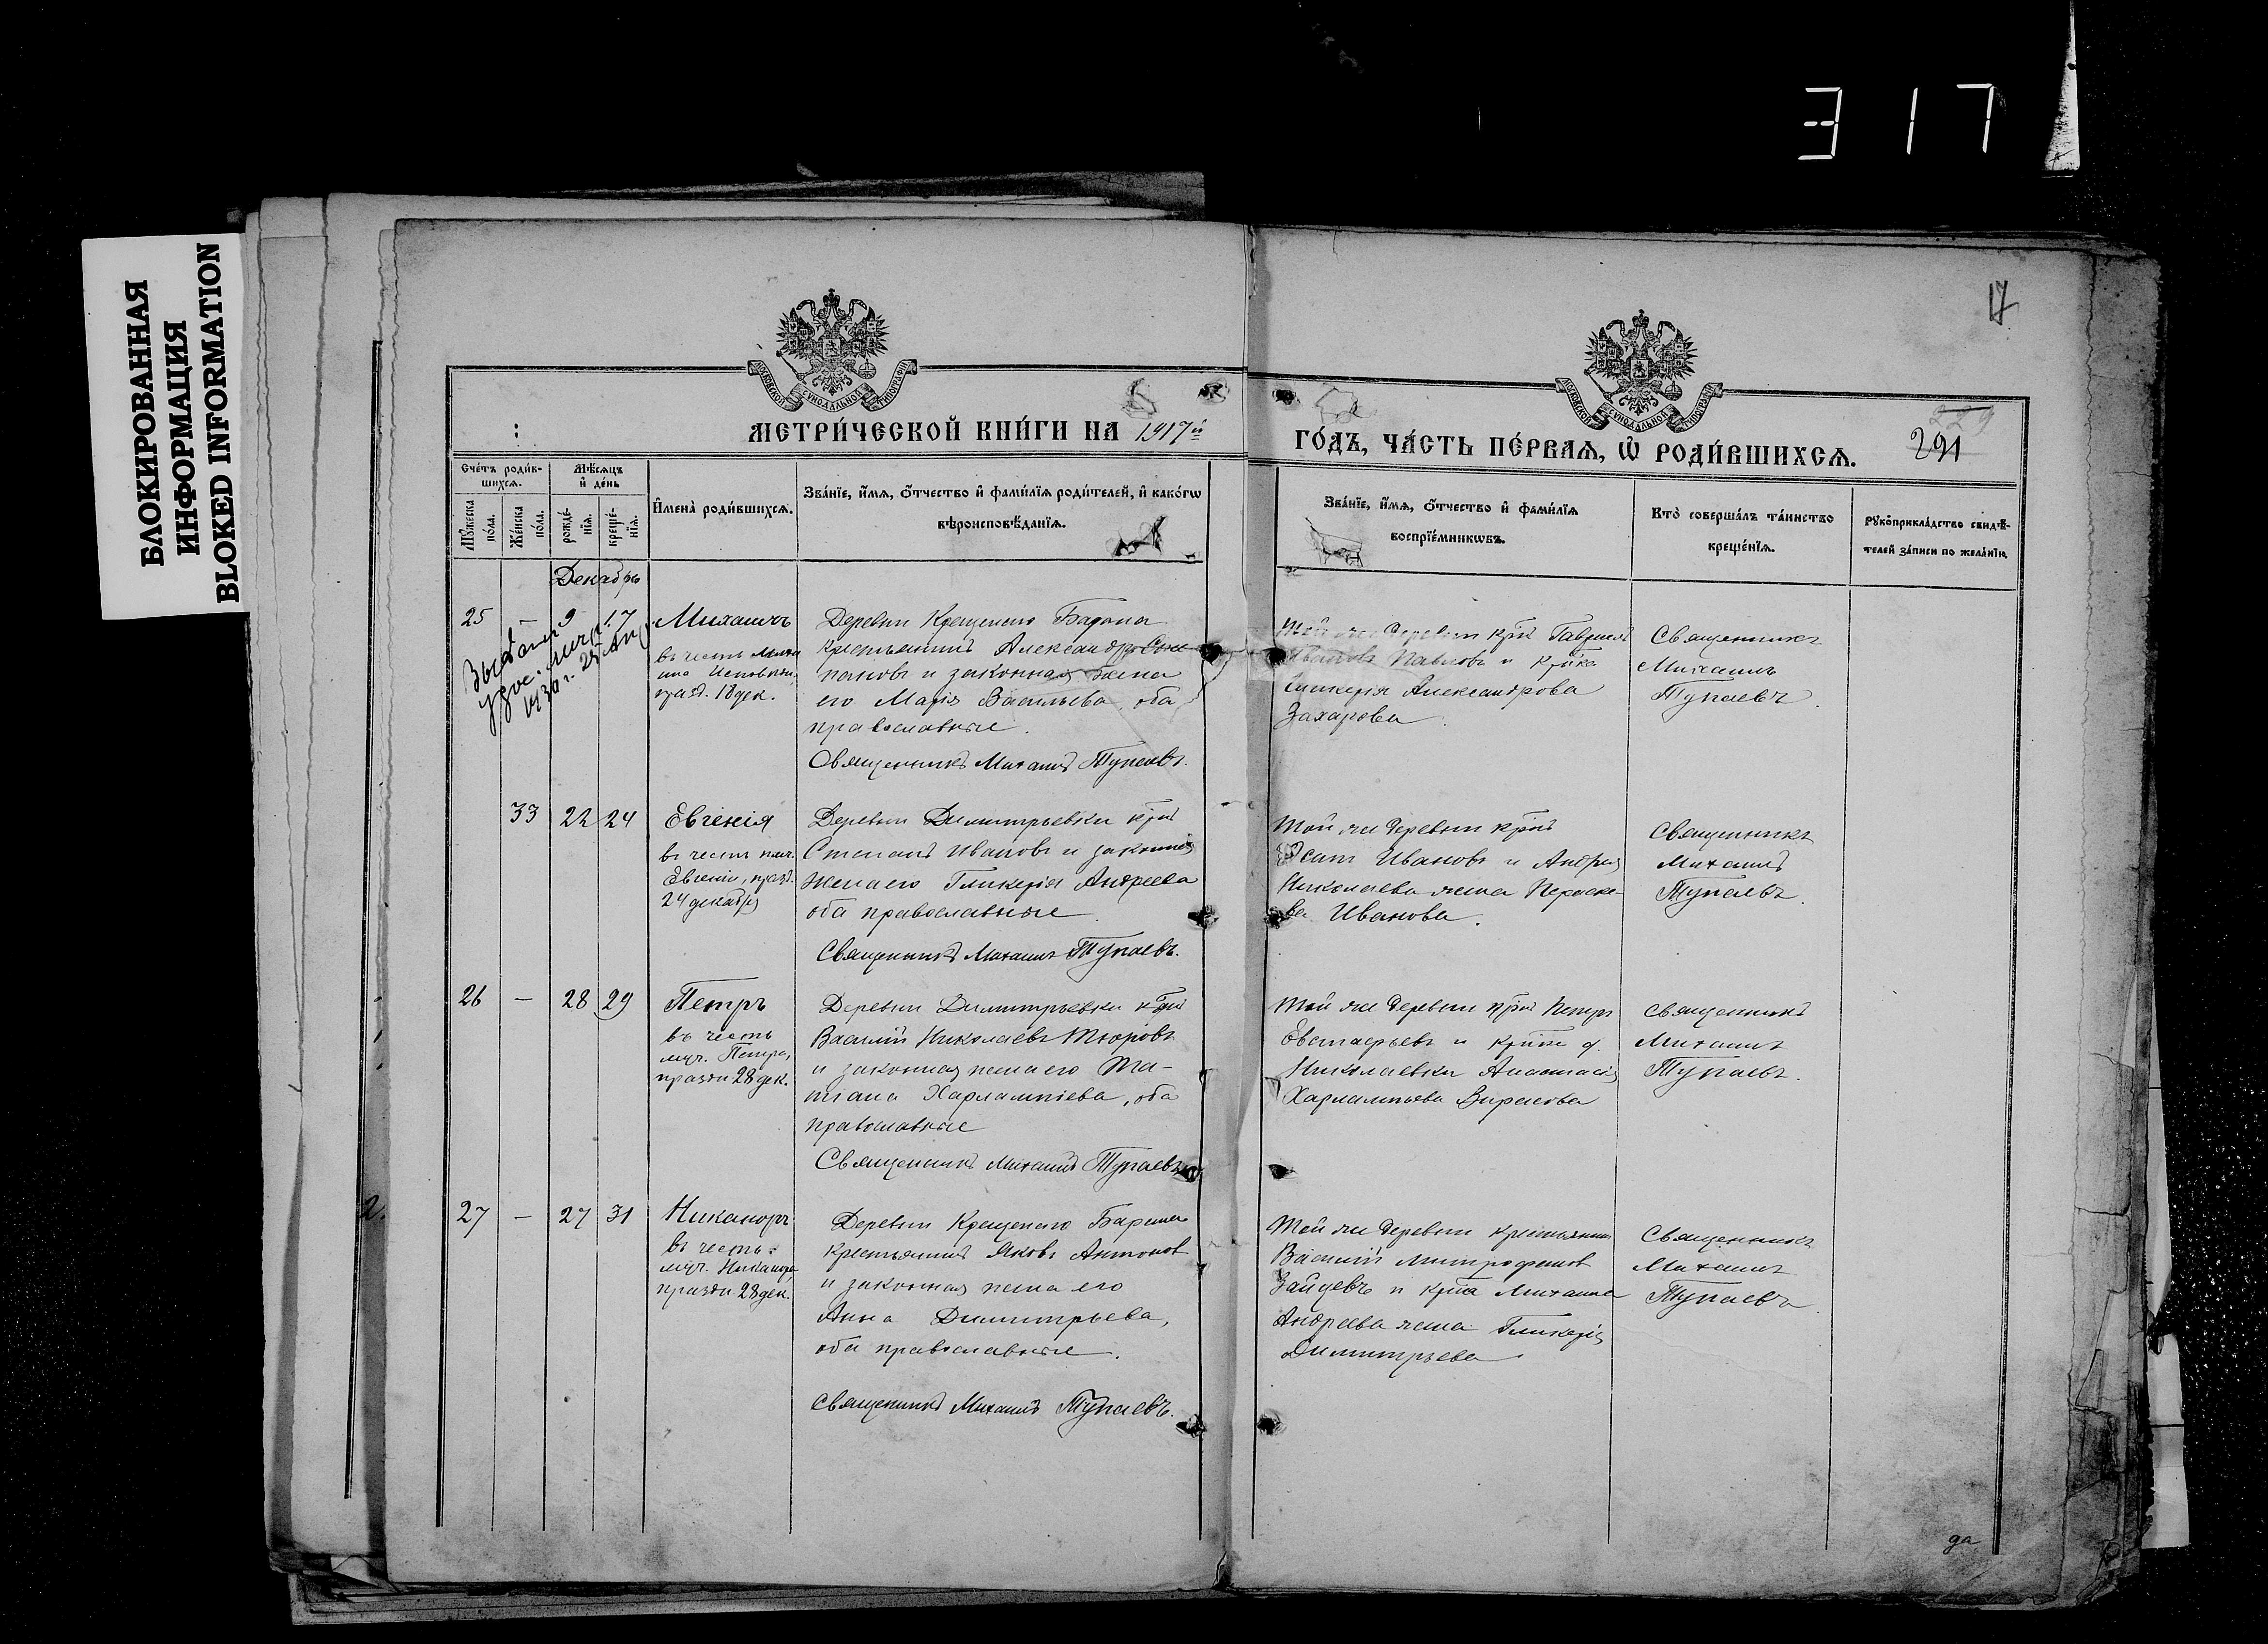 317
БЛОКИРОВАННАЯ
ИНФОРМАЦИЯ
BLOKED INFORMATION
17
МЕТРИ́ЧЕСКОЙ КНИ́ГИ НА 1917й
ГО́ДЪ, ЧА́СТЬ ПЕ́РВАЯ, Ѡ РОДИ́ВШИХСЯ.
291
Сче́тъ роди́в-
шихся.
Мѣ́сяцъ
и де́нь
Мꙋ́жеска
по́ла.
Же́нска
по́ла.
рожде́-
нїя.
креще́-
нїя.
Имена̀ роди́вшихся.
Зва́нїе, и́мя, о́тчество и фами́лїя роди́телей, и како́гѡ
вѣроисповѣ́данїя.
Зва́нїе, и́мя, о́тчество и фами́лїя
воспрїе́мникѡвъ.
Кто̀ соверша́лъ та́инство
креще́нїя.
Рꙋкоприкла́дство свидѣ́-
телей за́писи по жела́нїю.
Декабрь
25 – 9 17
Михаилъ
въ честь Миха
ила Исповѣдн.
празд. 18 дек.
Деревни Крещенаго Барана
крестьянинъ Александръ Сте
пановъ и законная жена
его Марія Васильева, оба
православные.
Священникъ Михаилъ Тупаевъ.
Той же деревни кр̃нъ Гавриилъ
Ивановъ Павловъ и кр̃нка
Гликерія Александрова
Захарова
Священникъ
Михаилъ
Тупаевъ.
33 22 24
Евгенія
въ честь прмч.
Евгеніи, празд.
24 декабря
Деревни Димитріевки кр̃нъ
Степанъ Ивановъ и законная
жена его Гликерія Андреева
оба православные.
Священникъ Михаилъ Тупаевъ.
Той же деревни кр̃нъ
Ивановъ и Андрея
Николаева жена Параске-
ва Иванова.
Священникъ
Михаилъ
Тупаевъ.
26 – 28 29
Петръ
въ честь
муч. Петра,
праздн 28 дек.
Деревни Димитріевки кр̃нъ
Василій Николаевъ Тюровъ
и законная жена его Та-
тіана Харлампіева, оба
православные
Священникъ Михаилъ Тупаевъ
Той же деревни кр̃нъ Петръ
Евстафьевъ и кр̃нка д.
Николаевки Анастасія
Харлампьева
Священникъ
Михаилъ
Тупаевъ.
27 – 27 31
Никаноръ
въ честь
муч. Никанора
праздн 28 дек.
Деревни Крещенаго Барана
крестьянинъ Яковъ Антонов
и законная жена его
Анна Димитрьева,
оба православные.
Священникъ Михаилъ Тупаевъ.
Той же деревни крестьянинъ
Василій Митрофанов
Зайцевъ и кр̃на Михаила
Андреева жена Гликерія
Димитрьева
Священникъ
Михаилъ
Тупаевъ.
2.
да